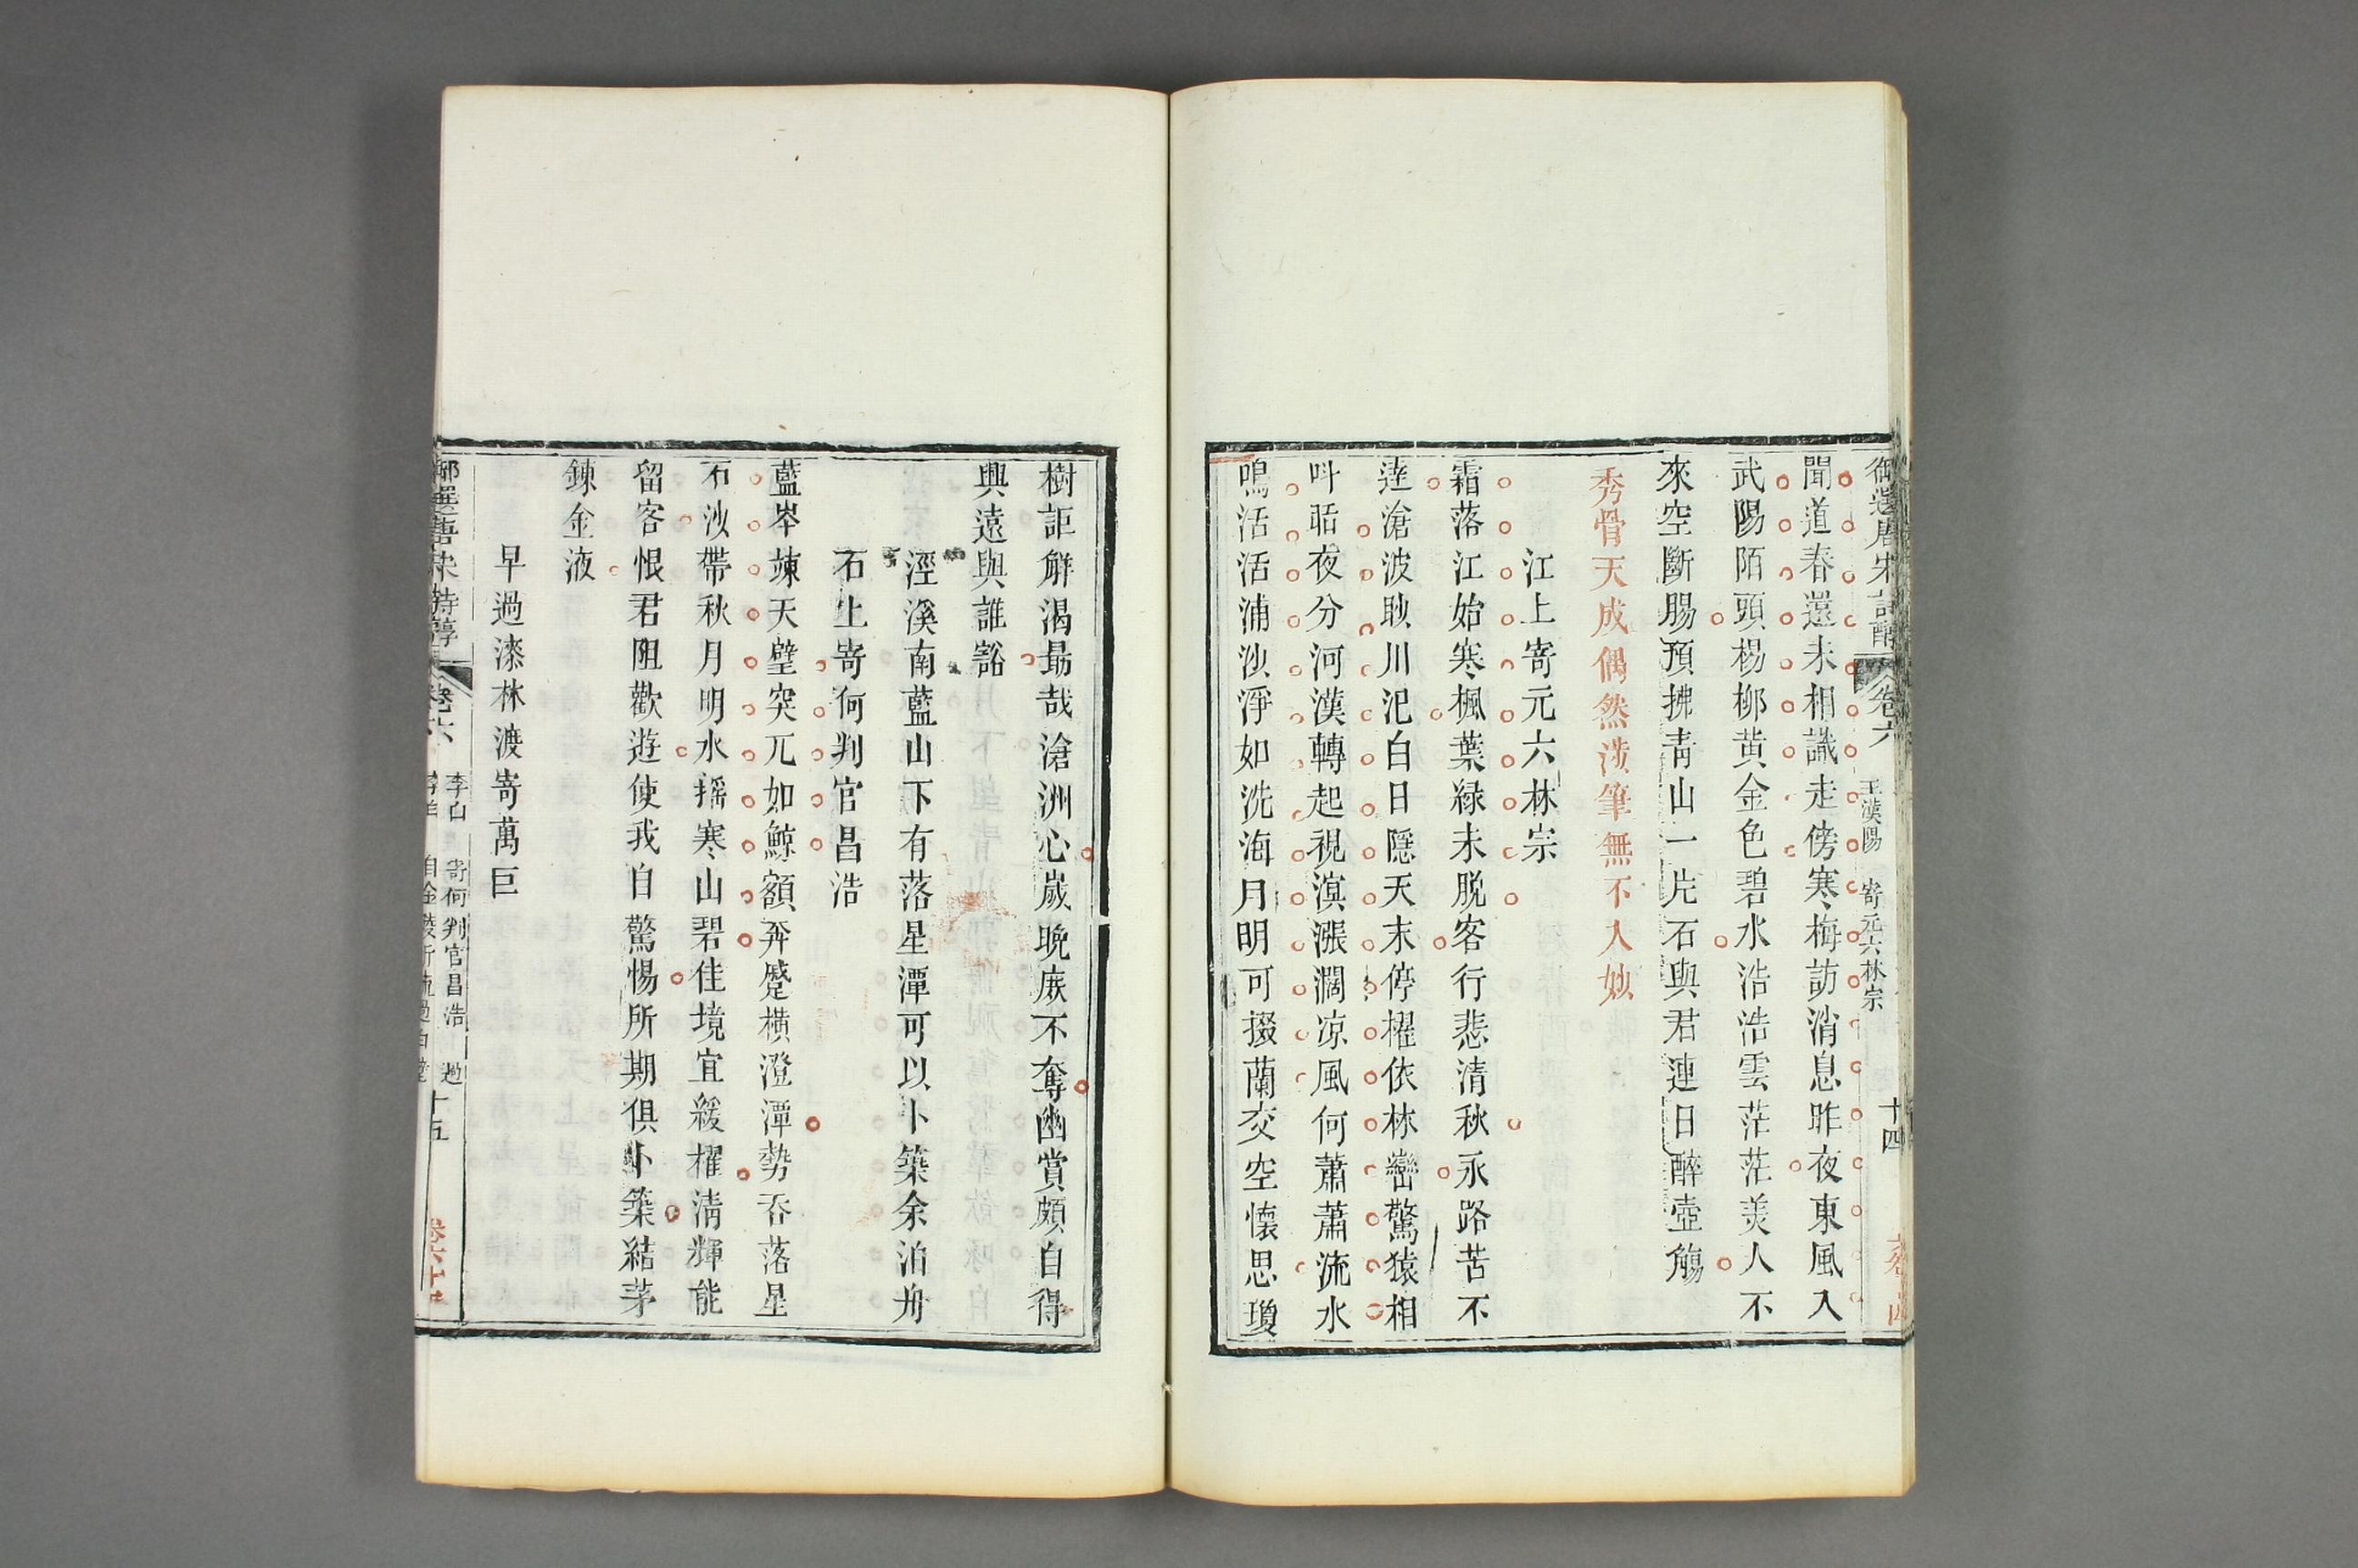 御選唐宋詩醇 卷六 王漢陽 寄元六林宗 十四
聞道春還未相識走傍寒梅訪消息昨夜東風入
武陽陌頭楊柳黃金色碧水浩浩雲茫茫美人不
來空斷腸預拂青山一片石與君連日醉壺觴
秀骨天成偶然涉筆無不入妙
江上寄元六林宗
霜落江始寒楓葉緑未脫客行悲清秋永路苦不
達滄波眇川汜白日隱天末停櫂依林巒驚猿相
叫聒夜分河漢轉起視溟漲濶凉風何蕭蕭流水
鳴活活浦沙淨如洗海月明可掇蘭交空懷思瓊
樹詎解渴朂哉滄洲心歲晚庻不奪幽賞頗自得
興遠與誰豁
涇溪南藍山下有落星潭可以卜築余泊舟
石上寄何判官昌浩
藍岑竦天壁突兀如鯨額奔蹙橫澄潭勢吞落星
石沙帶秋月明水搖寒山碧佳境宜緩櫂清輝能
留客恨君阻歡遊使我自驚惕所期俱卜築結茅
鍊金液
早過漆林渡寄萬巨
卷六 李白 寄何判官昌浩 過 十五